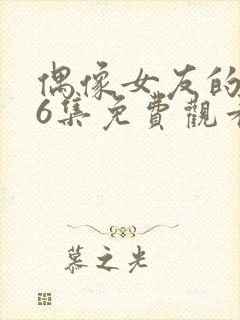 偶像女友的
6集免費觀看
慕之光